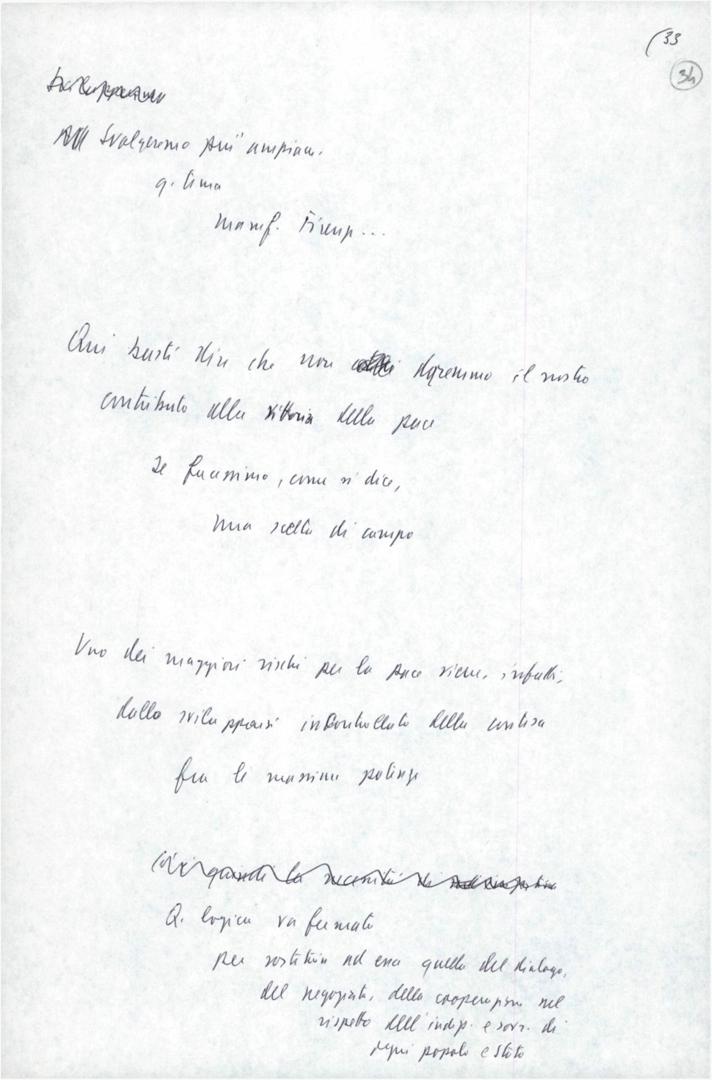 33
34
Svolgeremo più ampiam.
q. tema
manif. Firenze...
Qui basti dire che non daremmo il nostro
contributo alla vittoria della pace
se facessimo, come si dice,
una scelta di campo
Uno dei maggiori rischi per la pace viene, infatti,
dallo svilupparsi incontrollato della contesa
fra le massime potenze
C'è quindi la necessità di
Q. logica va fermata
per sostituire ad essa quella del dialogo,
del negoziato, della cooperazione nel
rispetto dell'indip. e sovr. di
ogni popolo e Stato